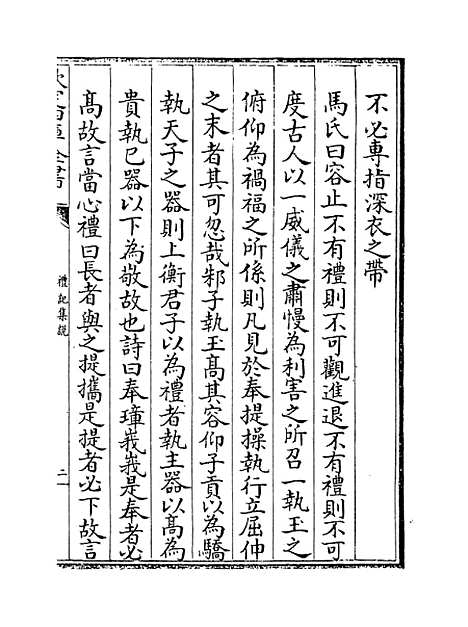 不必專指深衣之帶
馬氏曰容止不有禮則不可觀進退不有禮則不可
度古人以一威儀之肅慢為利害之所召一執玉之
俯仰為禍福之所係則凡見於奉提操執行立屈伸
之末者其可忽哉邾子執玉髙其容仰子貢以為驕
執天子之器則上衡君子以為禮者執主器以髙為
貴執已器以下為敬故也詩曰奉璋峩峩是奉者必
髙故言當心禮曰長者與之提攜是提者必下故言
欽定四庫全書
禮記集說
二